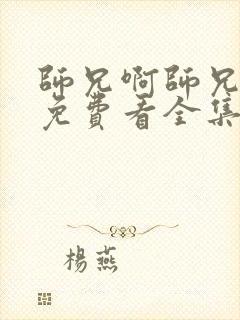 師兄啊師兄
免費看全集
楊燕